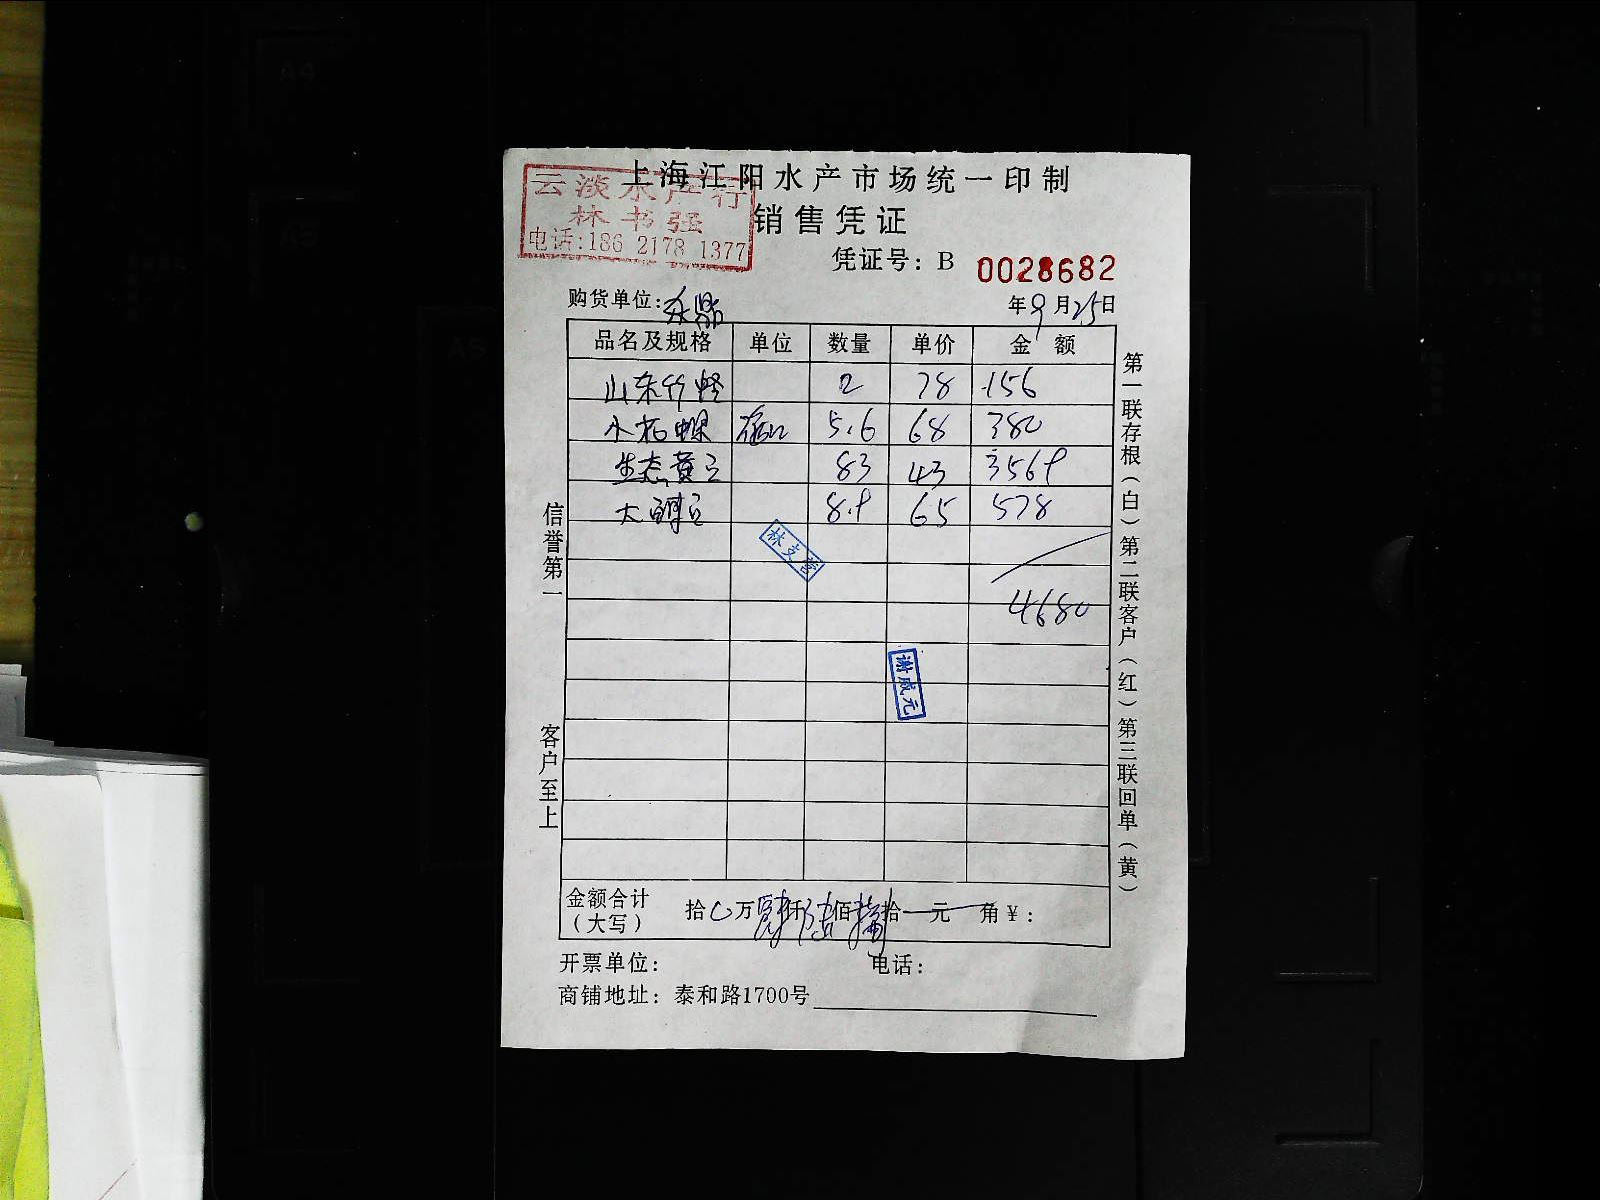 上海江阳水产市场统一印制
云淡水产行
林书强
电话:186 2178 1377
销售凭证
凭证号: B 0028682
购货单位: 永鼎 年9月25日
品名及规格 单位 数量 单价 金额
山东竹蛏 2 78 156
小花螺 5.6 68 380
生态黄豆 83 43 3569
大 8.9 65 578
林文营
4680
谢成元
信誉第一
客户至上
第一联存根(白)第二联客户(红)第三联回单(黄)
金额合计
(大写) 拾 万肆仟陆佰捌拾 元 角¥:
开票单位: 电话:
商铺地址: 泰和路1700号
A4
A5
A5